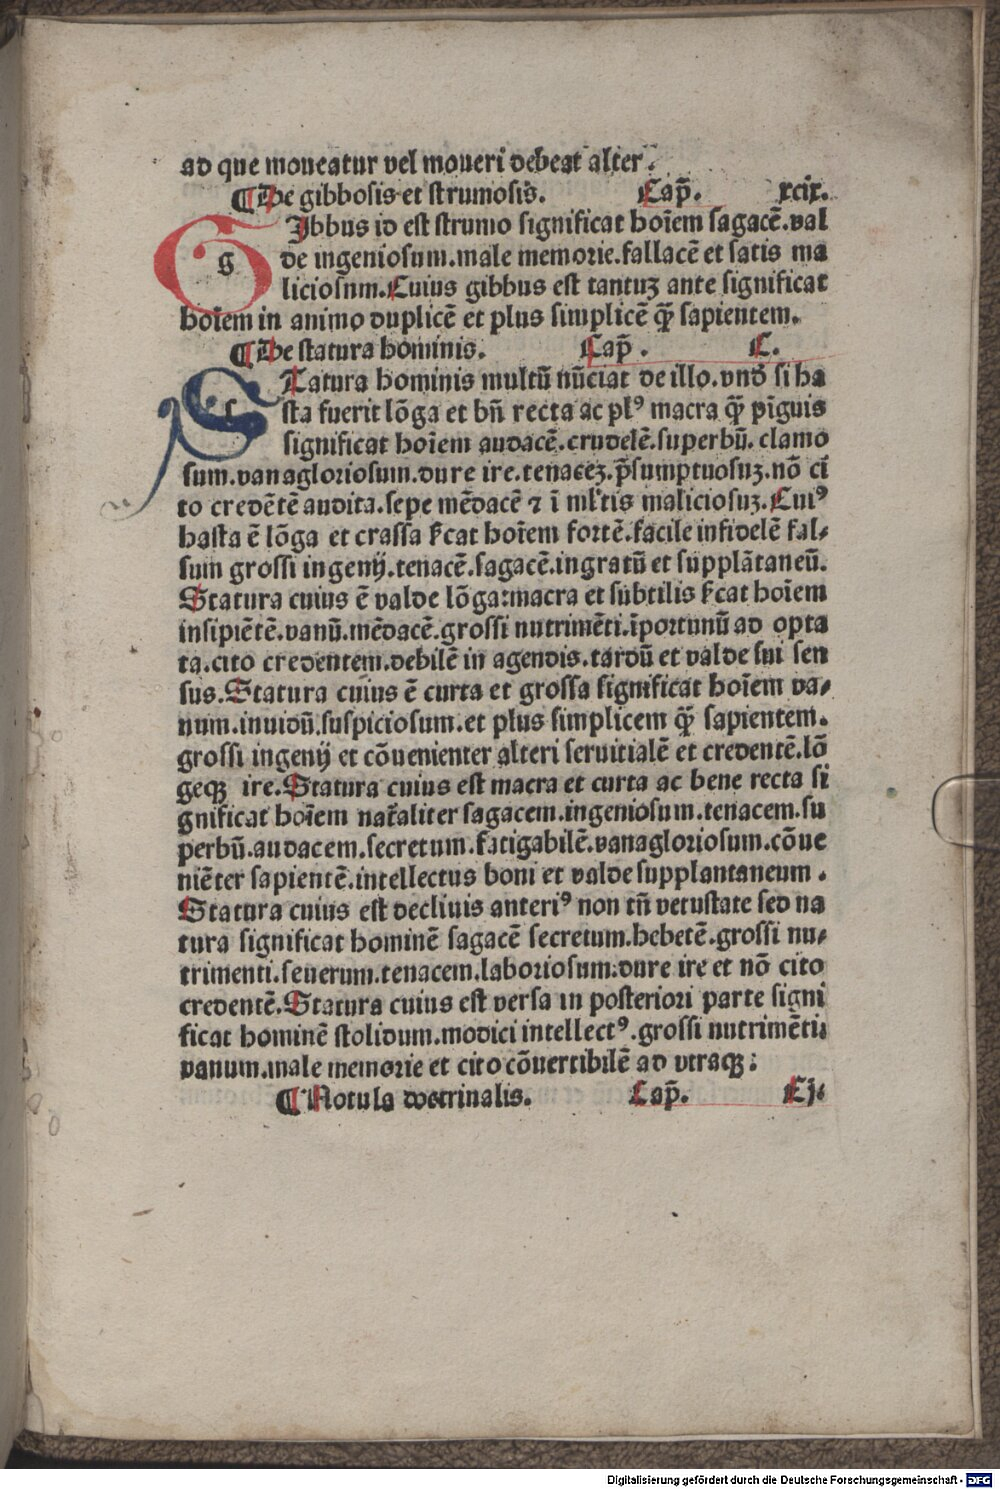 ad que moueatur vel moueri debeat alter.
¶ De gibbosis et strumosis. Cap̄. xcix.
GIbbus id est strumo significat hoīem sagacē.val
de ingeniosum.male memorie.fallacē et satis ma
liciosum.Cuius gibbus est tantuꝫ ante significat
hoīem in animo duplicē et plus simplicē q̄ꝫ sapientem.
¶ De statura hominis. Cap̄. C.
STatura hominis multū nūciat de illo.vnd̄ si ha
sta fuerit lōga et bn̄ recta ac plꝰ macra q̄ꝫ pīguis
significat hoīem audacē.crudelē.superbū.clamo
sum.vanagloriosum.dure ire.tenaceꝫ.p̄sumptuosuꝫ.nō ci
to credētē audita.sepe mēdacē ⁊ ī ml̄tis maliciosuꝫ.Cuiꝰ
hasta ē lōga et crassa s̄cat hoīem fortē.facile infidelē fal⸗
sum grossi ingenij.tenacē.sagacē.ingratū et supplātaneū.
Statura cuius ē valde lōga:macra et subtilis s̄cat hoīem
insipiētē.vanū.mēdacē.grossi nutrimēti.īportunū ad opta
ta.cito credentem.debilē in agendis.tardū et valde sui sen
sus.Statura cuius ē curta et grossa significat hoīem va⸗
num.inuidū.suspiciosum.et plus simplicem q̄ꝫ sapientem.
grossi ingenij et cōuenienter alteri seruitialē et credentē.lō
geqꝫ ire.Statura cuius est macra et curta ac bene recta si
gnificat hoīem nat̄aliter sagacem.ingeniosum.tenacem.su
perbū.audacem.secretum.fatigabilē.vanagloriosum.cōue
niēter sapientē.intellectus boni et valde supplantaneum.
Statura cuius est decliuis anteriꝰ non tn̄ vetustate sed na
tura significat hominē sagacē secretum.hebetē.grossi nu⸗
trimenti.seuerum.tenacem.laboriosum:dure ire et nō cito
credentē.Statura cuius est versa in posteriori parte signi
ficat hominē stolidum.modici intellectꝰ.grossi nutrimēti:
vanum.male memorie et cito cōuertibilē ad vtraqꝫ:
¶ Notula doctrinalis. Cap̄. Cj.
Digitalisierung gefördert durch die Deutsche Forschungsgemeinschaft - DFG